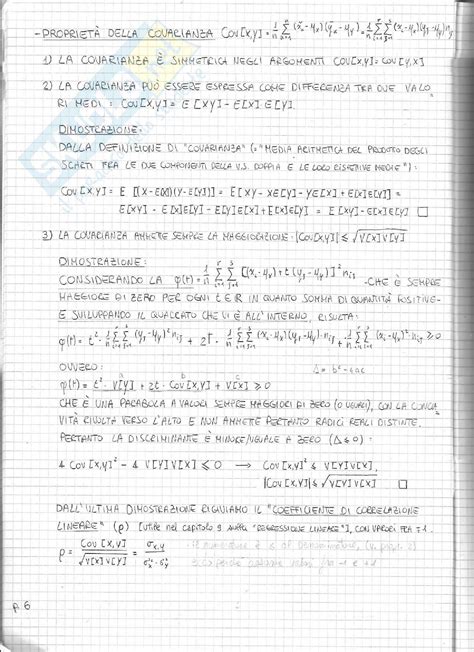 - PROPRIETÀ DELLA COVARIANZA COV[X,Y] = 1/n Σ (x_i - μ_x)(y_i - μ_y) = 1/n Σ Σ (x_i - μ_x)(y_j - μ_y) n_ij
1) LA COVARIANZA È SIMMETRICA NEGLI ARGOMENTI COV[X,Y] = COV[Y,X]
2) LA COVARIANZA PUÒ ESSERE ESPRESSA COME DIFFERENZA TRA DUE VALO
RI MEDI : COV[X,Y] = E[XY] - E[X]E[Y].
DIMOSTRAZIONE:
DALLA DEFINIZIONE DI "COVARIANZA" (= "MEDIA ARITMETICA DEL PRODOTTO DEGLI
SCARTI TRA LE DUE COMPONENTI DELLA V.S. DOPPIA E LE LORO RISPETTIVE MEDIE"):
COV[X,Y] = E[(X-E[X])(Y-E[Y])] = E[XY - XE[Y] - YE[X] + E[X]E[Y]] =
E[XY] - E[X]E[Y] - E[Y]E[X] + E[X]E[Y] = E[XY] - E[X]E[Y] □
3) LA COVARIANZA AMMETTE SEMPRE LA MAGGIORAZIONE: |COV[X,Y]| ≤ √V[X]V[Y]
DIMOSTRAZIONE:
CONSIDERANDO LA φ(t) = 1/n Σ Σ [(x_i - μ_x) + t(y_j - μ_y)]² n_ij - CHE È SEMPRE
MAGGIORE DI ZERO PER OGNI t ∈ R IN QUANTO SOMMA DI QUANTITÀ POSITIVE -
E SVILUPPANDO IL QUADRATO CHE VI È ALL'INTERNO, RISULTA:
φ(t) = t² · 1/n Σ Σ (y_j - μ_y)² n_ij + 2t · 1/n Σ Σ (x_i - μ_x)(y_j - μ_y) n_ij + 1/n Σ Σ (x_i - μ_x)² n_ij
OVVERO: Δ = b² - 4ac
φ(t) = t² · V[Y] + 2t · COV[X,Y] + V[X] ≥ 0
CHE È UNA PARABOLA A VALORI SEMPRE MAGGIORI DI ZERO (O UGUALI), CON LA CONCA
VITÀ RIVOLTA VERSO L'ALTO E NON AMMETTE PERTANTO RADICI REALI DISTINTE.
PERTANTO LA DISCRIMINANTE È MINORE/UGUALE A ZERO (Δ ≤ 0):
4 COV[X,Y]² - 4 V[Y]V[X] ≤ 0 → COV[X,Y]² ≤ V[Y]V[X]
|COV[X,Y]| ≤ √V[X]V[Y] □
DALL'ULTIMA DIMOSTRAZIONE RICAVIAMO IL "COEFFICIENTE DI CORRELAZIONE
LINEARE" (ρ) [UTILE NEL CAPITOLO 9 SULLA "REGRESSIONE LINEARE"], CON VALORI FRA ∓1.
ρ = COV[X,Y] / √V[X]V[Y] = σ_x,y / σ_x · σ_y
P. 6